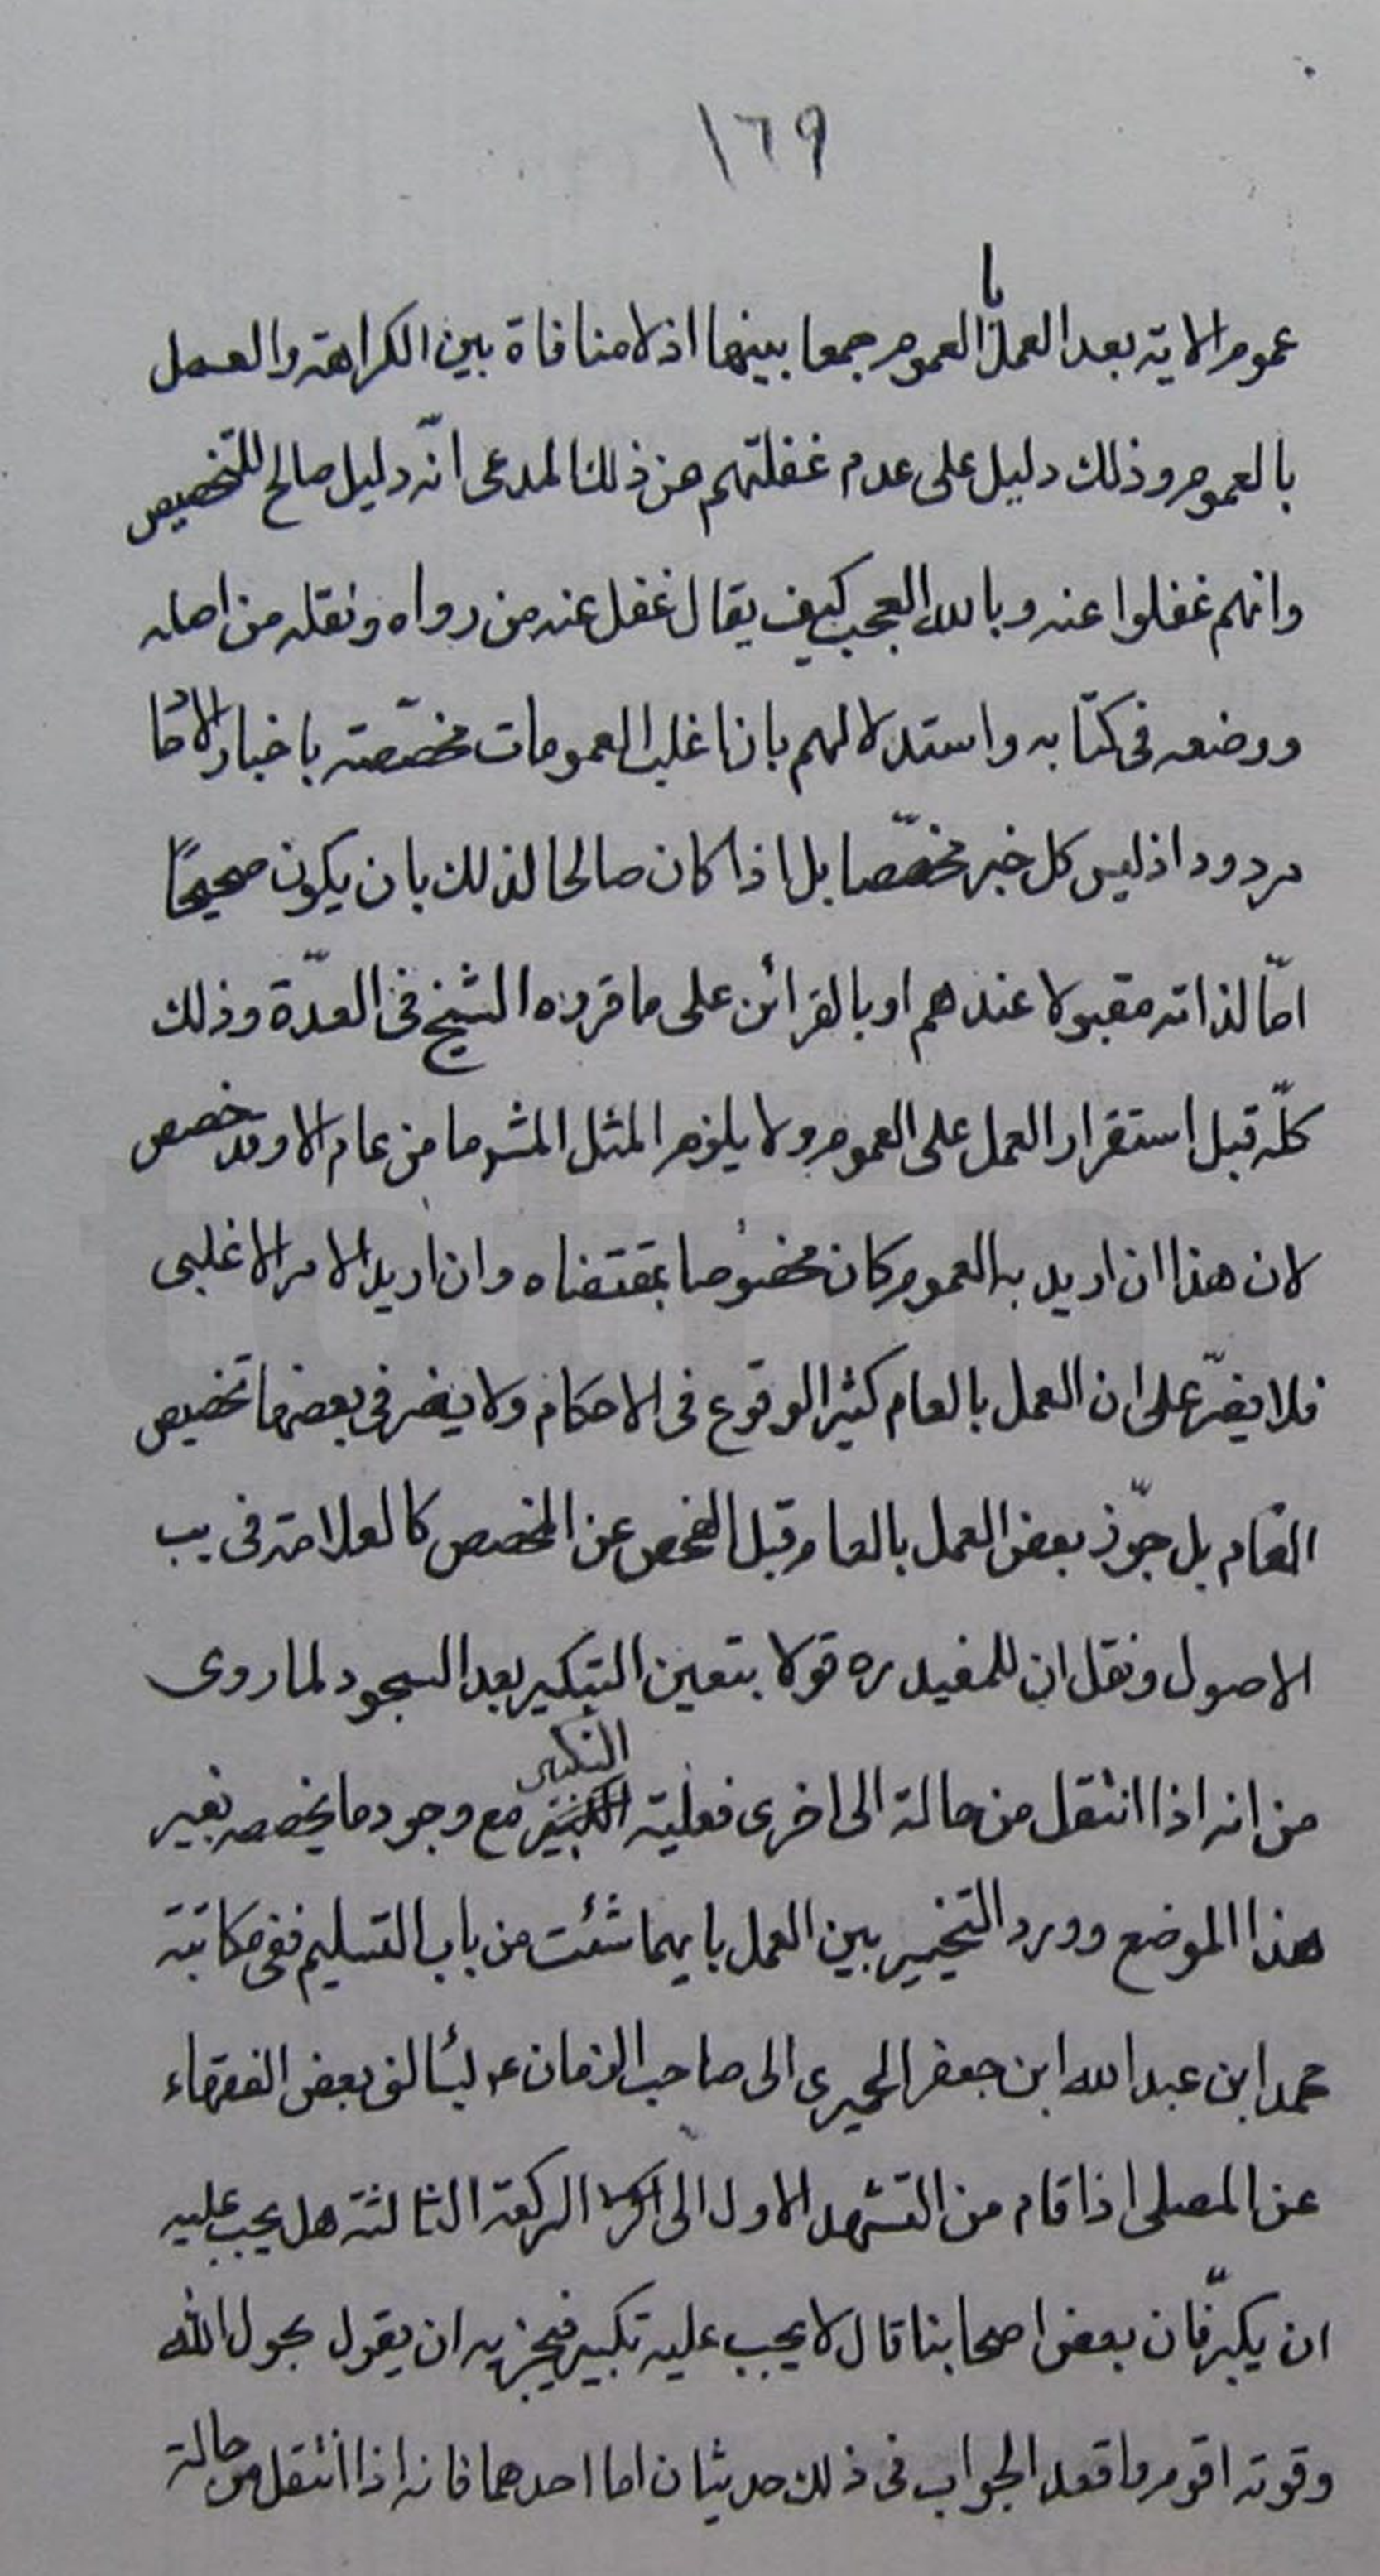 ١٦٩
عموم الاية بعد العمل با العموم جمعا بينهما اذ لا منافاة بين الكراهة والعمل
بالعموم وذلك دليل على عدم غفلتهم عن ذلك المدعى انّه دليل صالح للتخصيص
وانهم غفلوا عنه وبالله العجب كيف يقال غفل عنه من رواه ونقله من اصله
ووضعه فى كتابه واستدلالهم بان اغلب العمومات مخصّصة باخبار الاحا
مردود اذ ليس كل خبر مخصّصا بل اذا كان صالحا لذلك بان يكون صحيحًا
امّا لذاته مقبولا عندهم او بالقرائن على ما قرره الشيخ فى العدّة وذلك
كلّه قبل استقرار العمل على العموم ولا يلزم المثل المشهر ما من عام الا وقد خصص
لان هذا ان اريد به العموم كان مخصوصا بمقتضاه وان اريد الامر الاغلبى
فلا يضرّ على ان العمل بالعام كثير الوقوع فى الاحكام ولا يضر فى بعضها تخصيص
العام بل جوّز بعض العمل بالعام قبل الفحص عن المخصص كالعلامة فى يب
الاصول ونقل ان للمفيد ره قولا بتعين التكبير بعد السجود لما روى
من انه اذا انتقل من حالة الى اخرى فعليه التكبير مع وجود ما يخصصه بغير
هذا الموضع وورد التخيير بين العمل بايهما شئت من باب التسليم ففى مكاتبة
محمد ابن عبد الله ابن جعفر الحميرى الى صاحب الزمان ع يسألنى بعض الفقهاء
عن المصلى اذا قام من التشهد الاول الى الركعة الثالثة هل يجب عليه
ان يكبّر فان بعض اصحابنا قال لا يجب عليه تكبير فيجزيه ان يقول بحول الله
وقوته اقوم واقعد الجواب فى ذلك حديثان اما احدهما فانه اذا انتقل من حالة